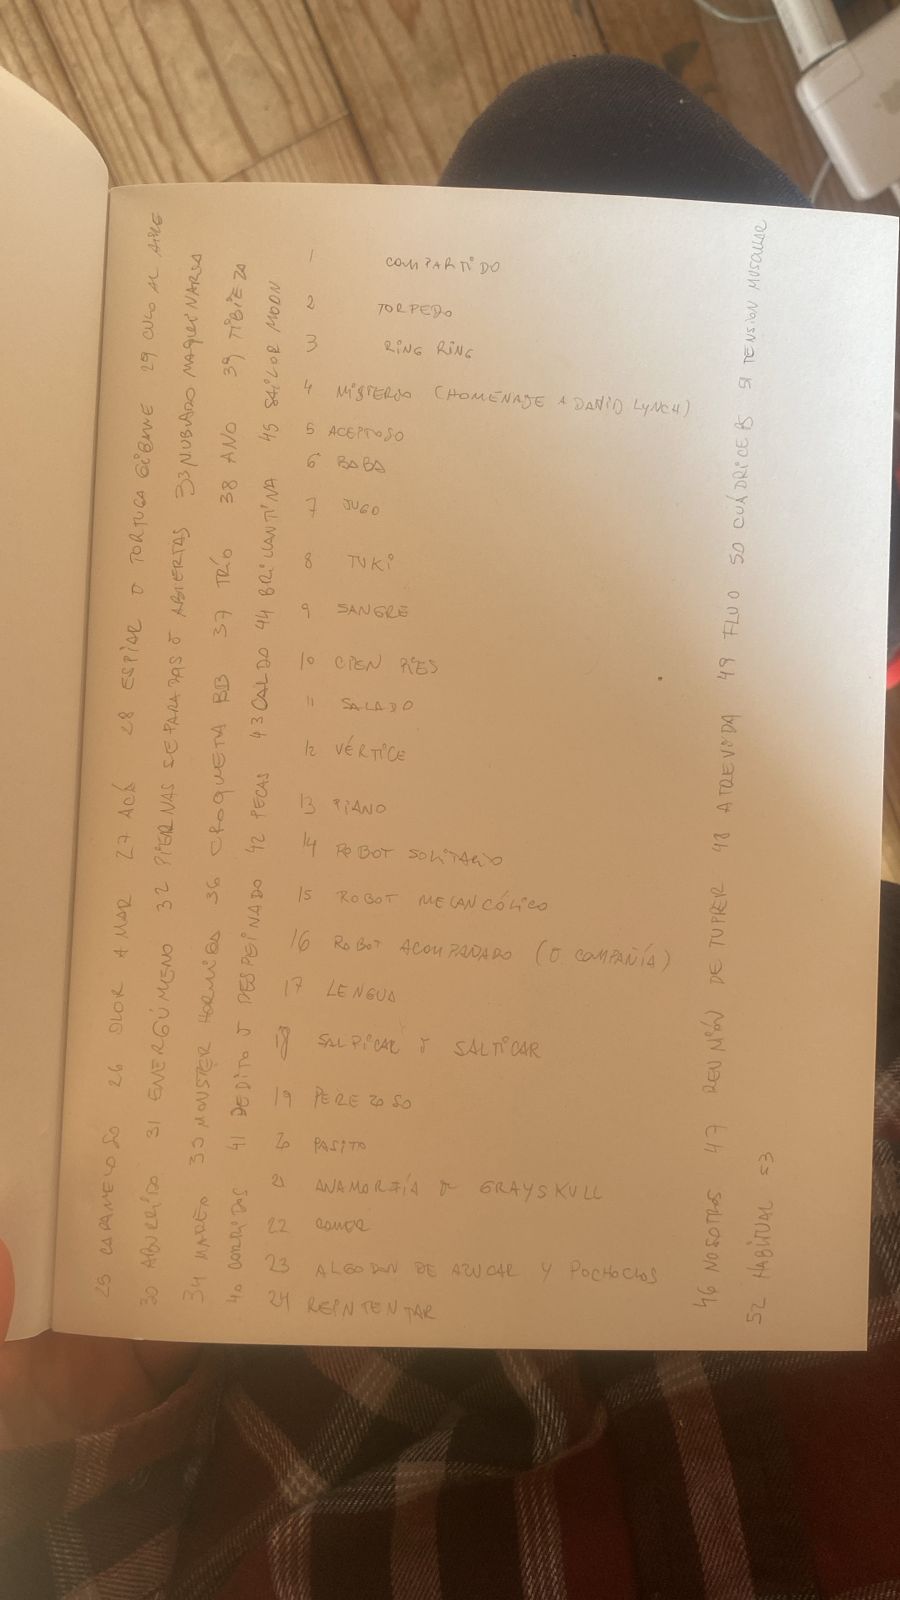 1 COMPARTIDO
2 TORPEDO
3 RING RING
4 MISTERIO (HOMENAJE A DAVID LYNCH)
5 ACEPTOSO
6 BABA
7 JUGO
8 TUKI
9 SANGRE
10 CIEN PIES
11 SALADO
12 VÉRTICE
13 PIANO
14 ROBOT SOLITARIO
15 ROBOT MELANCÓLICO
16 ROBOT ACOMPAÑADO (O COMPAÑÍA)
17 LENGUA
18 SALPICAR O SALTICAR
19 PEREZOSO
20 PASITO
21 ANAMORFÍA O GRAYSKULL
22 COMER
23 ALGODON DE AZUCAR Y POCHOCLOS
24 REINTENTAR
25 CARAMELOSO 26 OLOR A MAR 27 ACÁ 28 ESPIAR O TORTUGA GIGANTE 29 CULO AL AIRE
30 ABURRIDO 31 ENERGÚMENO 32 PIERNAS SEPARADAS O ABIERTAS 33 NUBADO MAQUINARIA
34 MAREO 35 MONSTER HORMIGA 36 CROQUETA BB 37 TRÍO 38 ANO 39 TIBIEZA
40 CORRIDAS 41 DEDITO O DESPEINADO 42 PECAS 43 CALDO 44 BRILLANTINA 45 SAILOR MOON
46 NOSOTROS 47 REUNIÓN DE TUPPER 48 ATREVIDA 49 FLUO 50 CUÁDRICEPS 51 TENSION MUSCULAR
52 HABITUAL 53